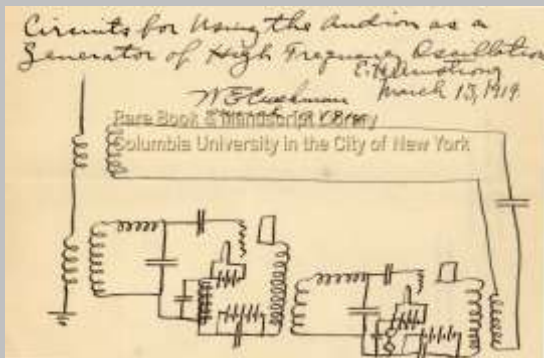 Circuits for Using the Audion as a
Generator of High Frequency Oscillation
E.H. Armstrong
March 13, 1919
Rare Book & Manuscript Library
Columbia University in the City of New York